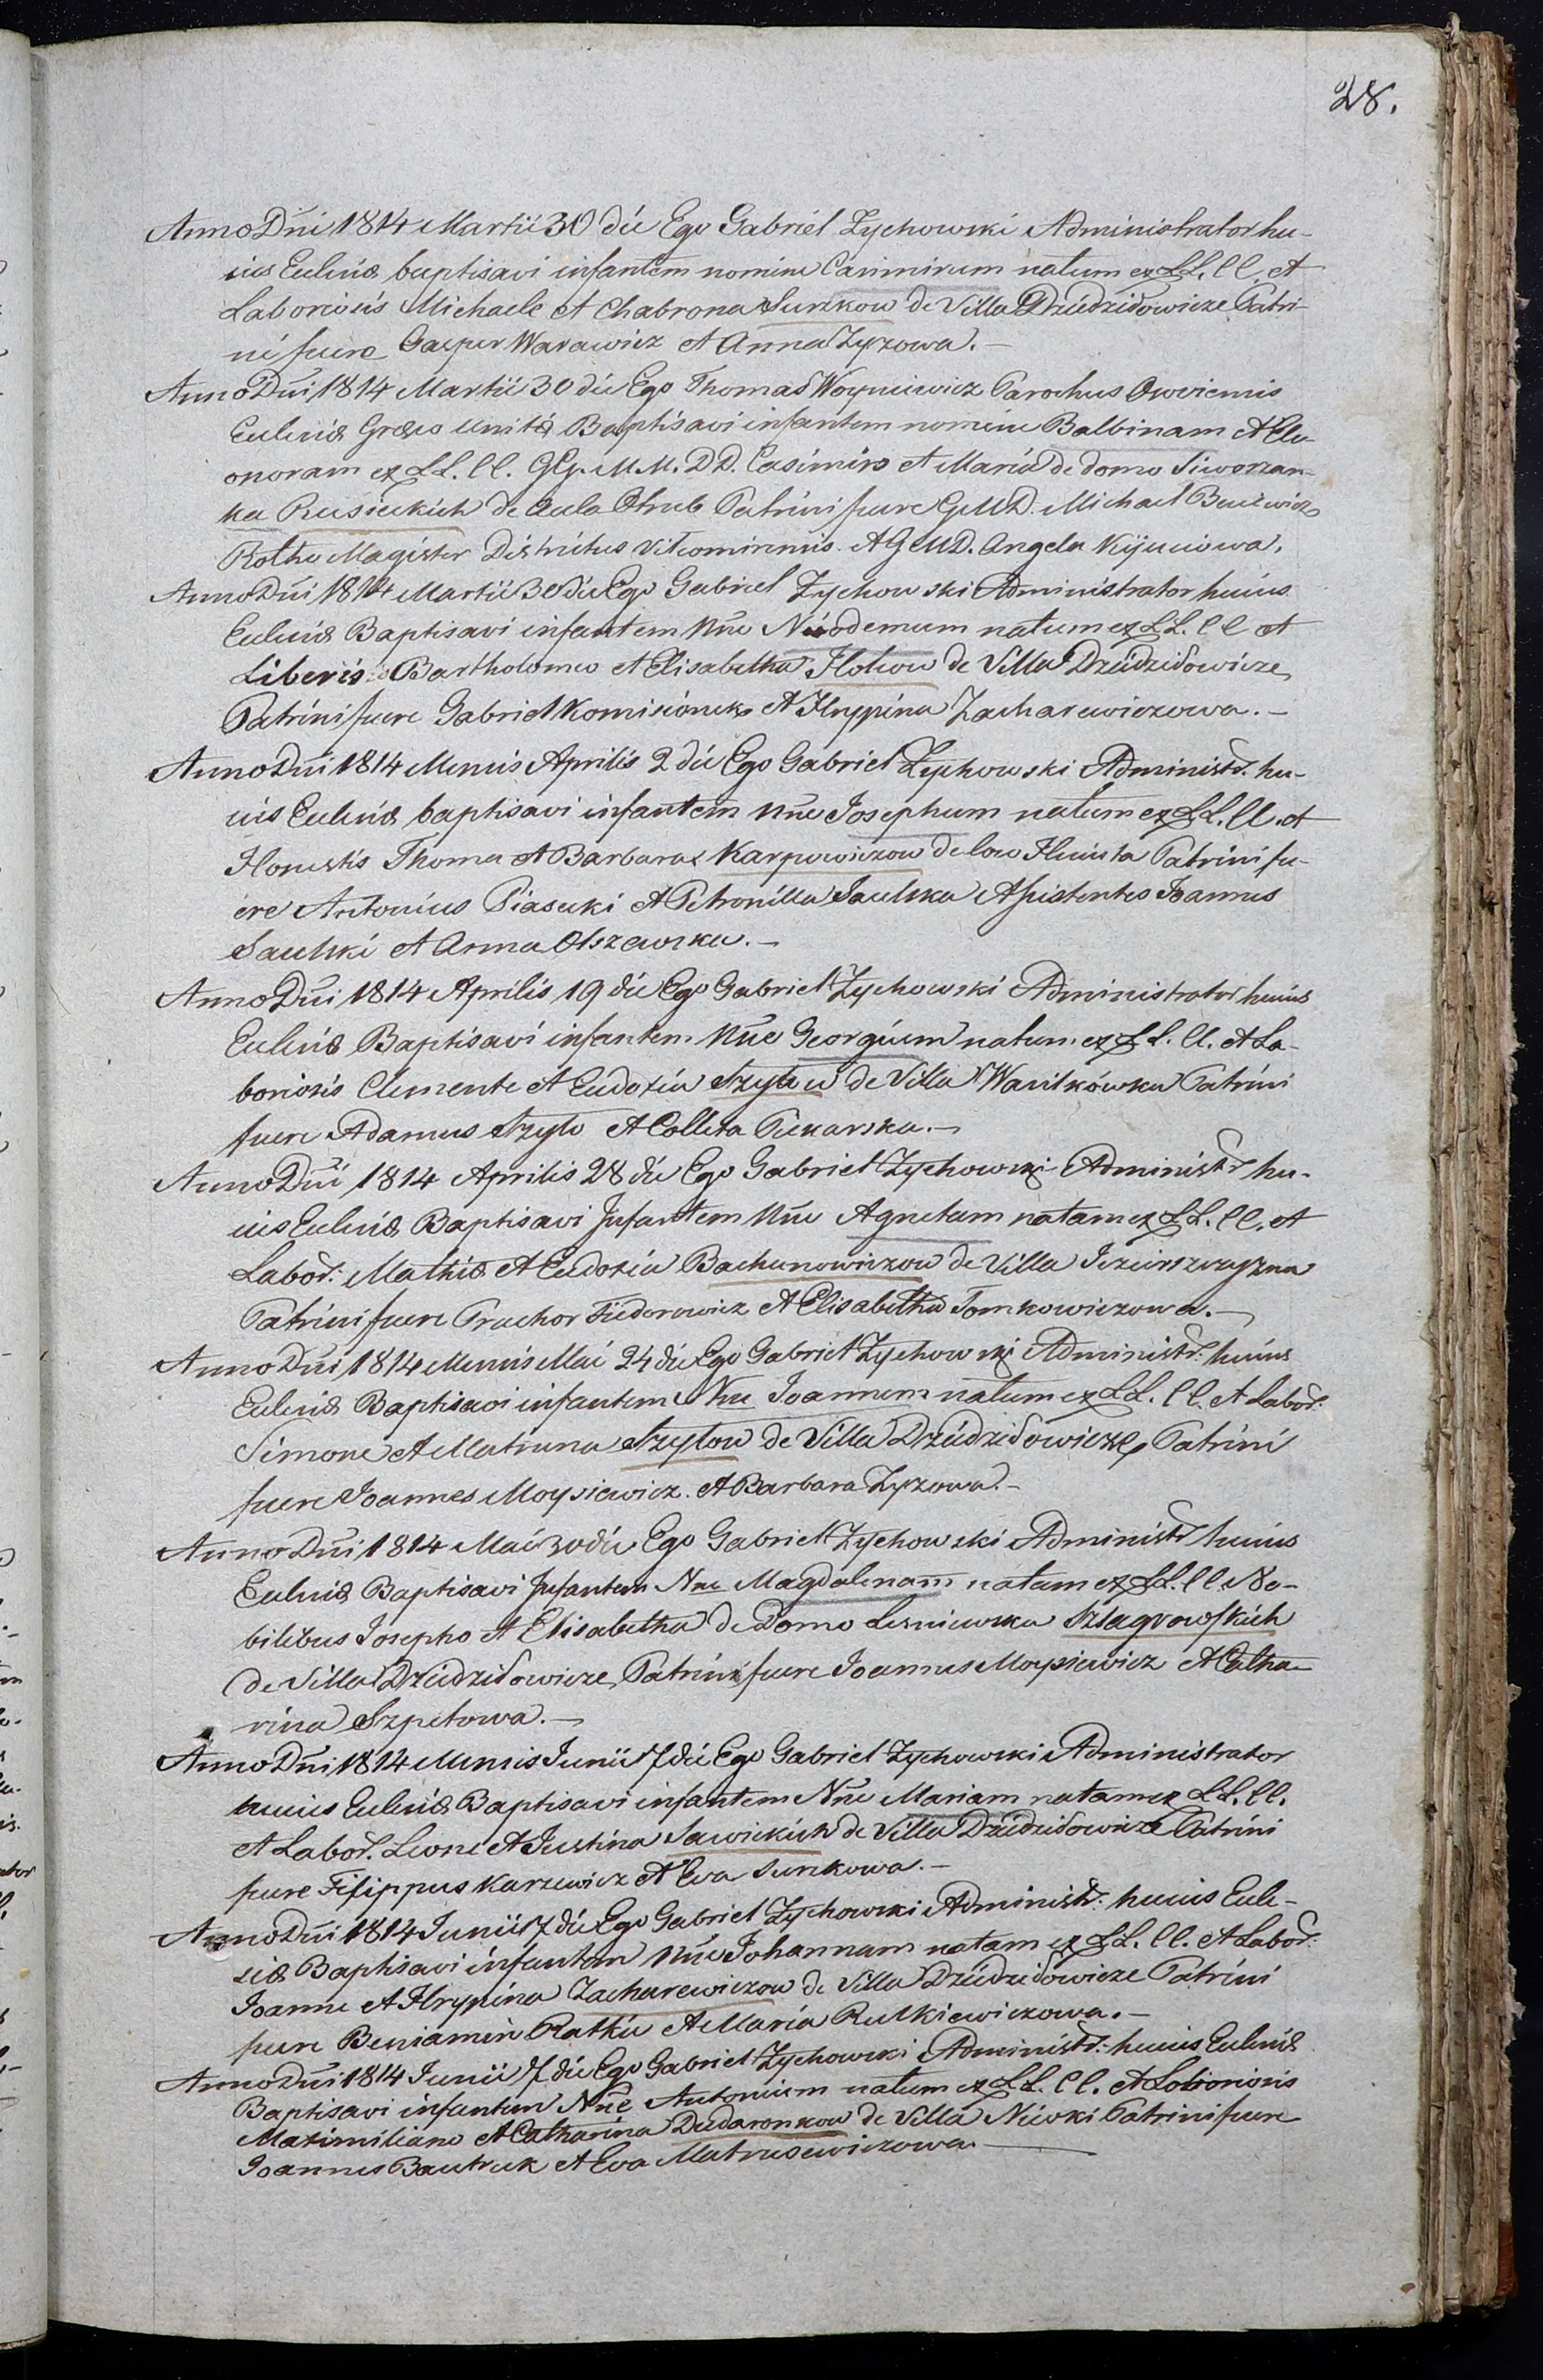 28.
Anno Dni 1814 Martii 30 die Ego Gabriel Zychowski Administrator hu-
ius Ecclesiæ baptisavi infantem nomine Casimirum natum ex LL. CC. et
Laboriosis Michaele et Chabrona Surzkow de Villa Dziedzidowicze Patri-
ni fuere Gaspar Warawicz et Anna Zyzowa.-
Anno Dni 1814 Martii 30 die Ego Thomas Woyniewicz Parochus
Ecclesiæ Græco unitæ Baptisavi infantem nomine Balbinam et Ele-
onoram ex LL. CC. GG. M.M. DD. Casimiro et Maria de domo Siworzan-
ka Rusieckich de Aula Strub Patrini fuere G.M.D. Michael
Rothe Magister Districtus et G.M.D. Angela Kijuciowa.
Anno Dni 1814 Martii 30 die Ego Gabriel Zychowski Administrator huius
Ecclesiæ Baptisavi infantem Nne Nicodemum natum ex LL. CC et
Liberis Bartholomeo et Elisabetha Hotwow de Villa Dziedzidowicze
Patrini fuere Gabriel Komisionek et Hryppina Zacharewiczowa.-
Anno Dni 1814 Mensis Aprilis 2 die Ego Gabriel Zychowski Administr. hu-
ius Ecclesiæ baptisavi infantem Nne Josephum natum ex LL. CC. et
Honestis Thoma et Barbara Karpowiczow de loco Patrini fu-
ere Antonius Piasecki et Petronilla Saulska Assistentes Joannes
Saulski et Anna Olszewska.-
Anno Dni 1814 Aprilis 19 die Ego Gabriel Zychowski Administrator huius
Ecclesiæ Baptisavi infantem Nne Georgium natum ex LL. CC. et La-
boriosis Clemente et Eudoxia Szyłow de Villa Wasilkówka Patrini
fuere Adamus Szyło et Colleta Piekarska.-
Anno Dni 1814 Aprilis 28 die Ego Gabriel Zychowski Administr hu-
ius Ecclesiæ Baptisavi Infantem Nne Agnetam natam ex LL. CC. et
Labor. Mathia et Eudoxia Bachanowiczow de Villa
Patrini fuere Prochor Fiedorowicz et Elisabetha Tomkowiczowa.-
Anno Dni 1814 Mensis Mai 24 die Ego Gabriel Zychowski Administr: huius
Ecclesiæ Baptisavi infantem Nne Joannem natum ex LL. CC. et Labor.
Simone et Matruna Szyłow de Villa Dziedzidowicze Patrini
fuere Joannes Moysiewicz. et Barbara Zyzowa.-
Anno Dni 1814 Mai 30 die Ego Gabriel Zychowski Administr huius
Ecclesiæ Baptisavi Infantem Nne Magdalenam natam ex LL. CC No-
bilibus Josepho et Elisabetha de Domo Lesniewska Szlagrowskich
de Villa Dziedzidowicze Patrini fuere Joannes Moysiewicz et Catha-
rina Szpetowa.-
Anno Dni 1814 Mensis Junii 7 die Ego Gabriel Zychowski Administrator
huius Ecclesiæ Baptisavi infantem Nne Mariam natam ex LL. CC.
et Labor. Leone et Justina Sawickich de Villa Dziedzidowicze Patrini
fuere Filippus Karzewicz et Eva Surzkowa.-
Anno Dni 1814 Junii 7 die Ego Gabriel Zychowski Administr: huius Eccle-
siæ Baptisavi infantem Nne Johannam natam ex LL. CC. et Labor:
Joanne et Hrypina Zacharewiczow de Villa Dziedzidowicze Patrini
fuere Beniamin Ratkie et Maria Rutkiewiczowa.-
Anno Dni 1814 Junii 7 die Ego Gabriel Zychowski Administr: huius Ecclesiæ
Baptisavi infantem Nne Antonium natum ex LL. CC. et Laboriosis
Maximiliano et Catharina Dudaronkow de Villa Niwki Patrini fuere
Joannes Bautruk et Eva Matrusewiczowa.-